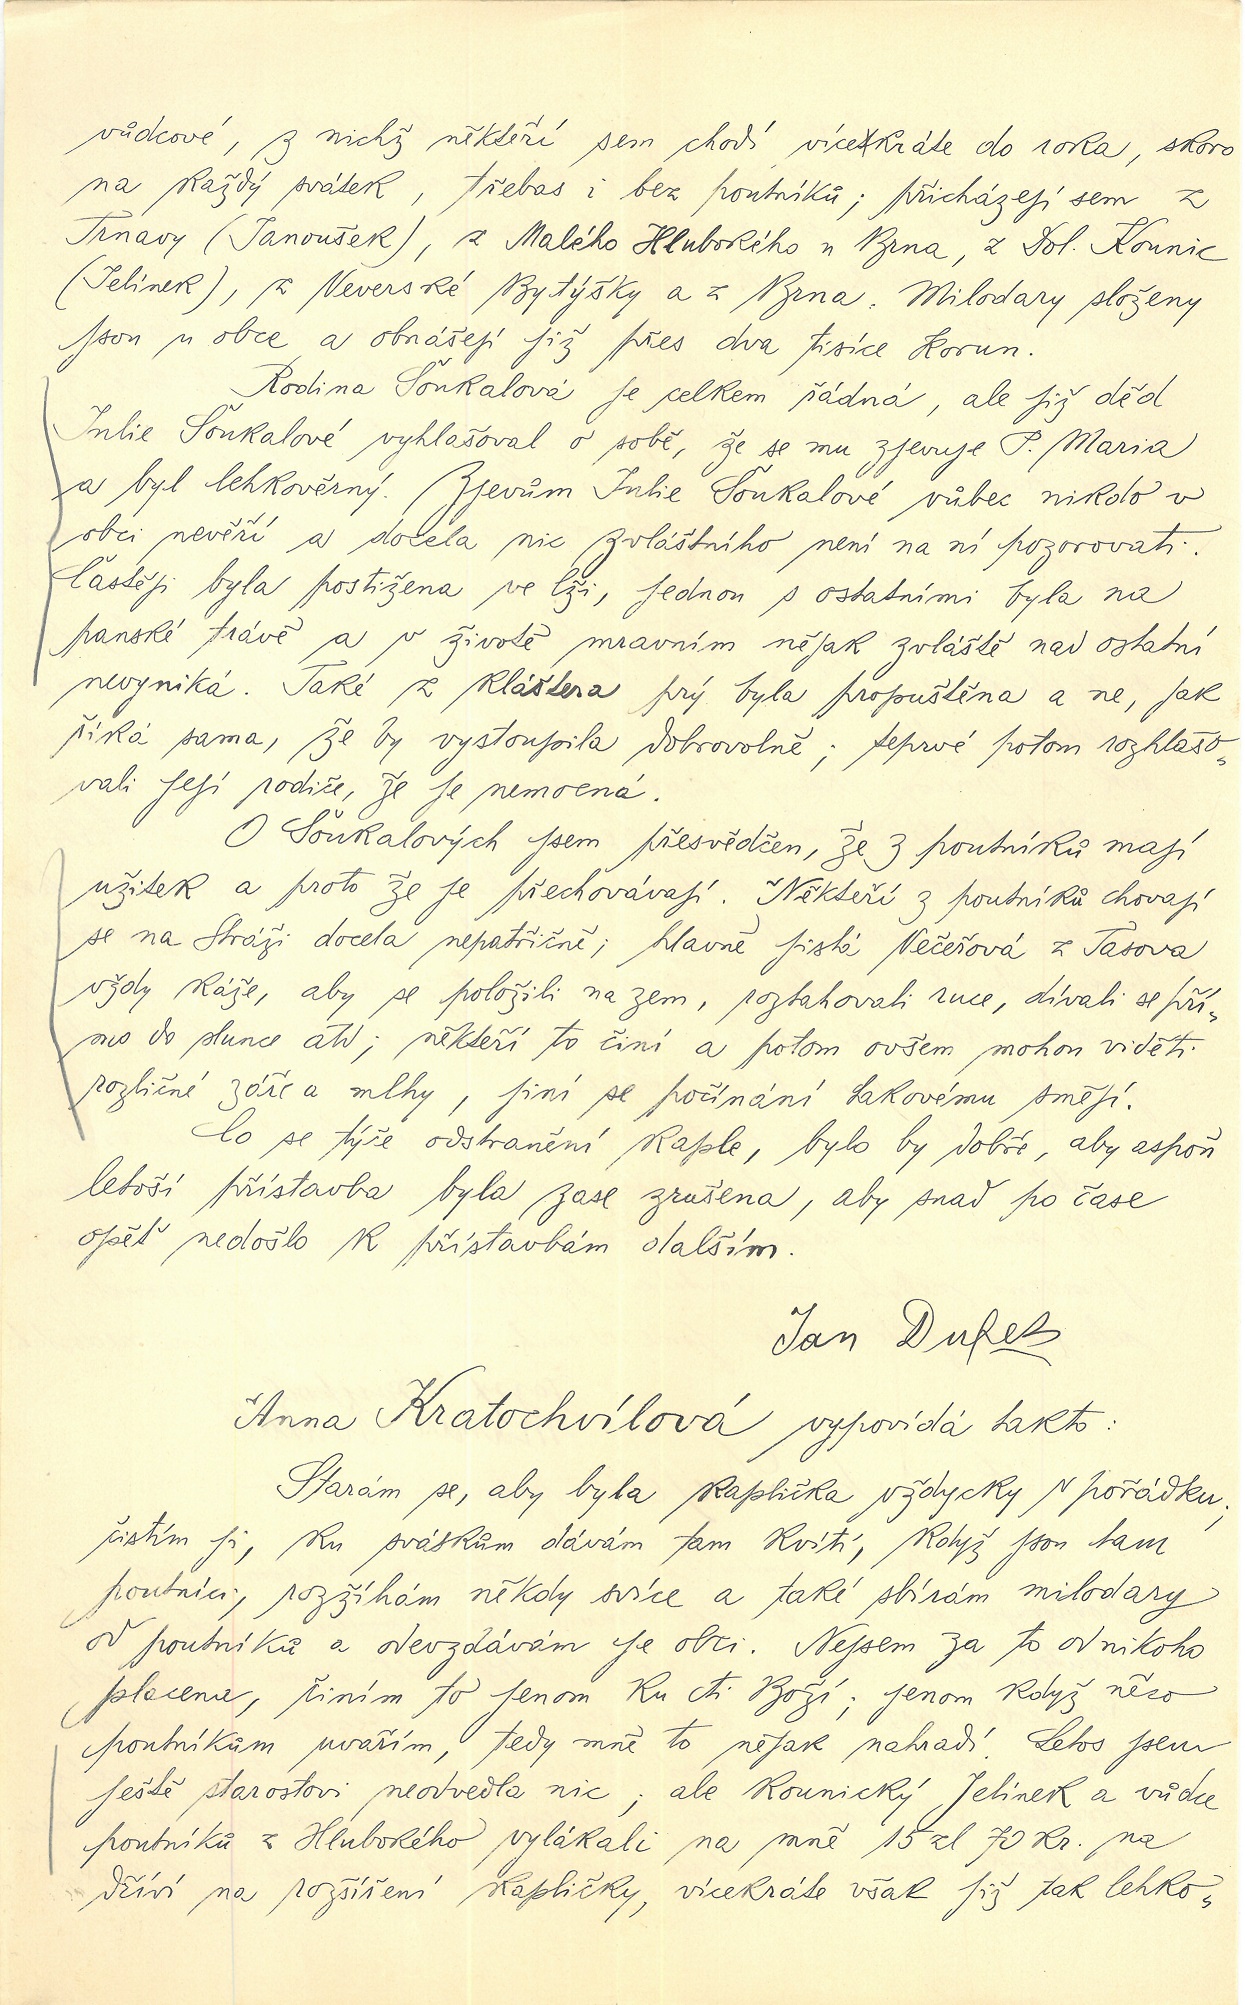 vůdcové, z nichž někteří sem chodí vícekráte do roka, skoro
na každý svátek, třebas i bez poutníků; přicházejí sem z
Trnavy (Janoušek), z Malého Hlubokého u Brna, z Dol. Kounic
(Jelínek), z Veverské Bytýšky a z Brna. Milodary složeny
jsou u obce a obnášejí již přes dva tisíce korun.
Rodina Šoukalová je celkem řádná, ale již děd
Julie Šoukalové vyhlašoval o sobě, že se mu zjevuje P. Maria
a byl lehkověrný. Zjevům Julie Šoukalové vůbec nikdo v
obci nevěří a docela nic zvláštního není na ní pozorovati.
Častěji byla postižena ve lži, jednou s ostatními byla na
panské trávě a v životě mravním nějak zvláště nad ostatní
nevyniká. Také z kláštera prý byla propuštěna a ne, jak
říká sama, že by vystoupila dobrovolně; teprvé potom rozhlašo-
vali její rodiče, že je nemocná.
O Šoukalových jsem přesvědčen, že z poutníků mají
užitek a proto že je přechovávají. Někteří z poutníků chovají
se na Stráži docela nepatřičně; hlavně jistá Večeřová z Tasova
vždy káže, aby se položili na zem, roztahovali ruce, dívali se pří-
mo do slunce atd; někteří to činí a potom ovšem mohou viděti
rozličné záře a mlhy, jiní se počínání takovému smějí.
Co se týče odstranění kaple, bylo by dobře, aby aspoň
letoší přístavba byla zase zrušena, aby snad po čase
opět nedošlo k přístavbám dalším.
Jan Dufek
Anna Kratochvílová vypovídá takto:
Starám se, aby byla kaplička vždycky v pořádku;
čistím ji, ku svátkům dávám tam kvítí, když jsou tam
poutníci, rozžíhám někdy svíce a také sbírám milodary
od poutníků a odevzdávám je obci. Nejsem za to od nikoho
placena, činím to jenom ku cti Boží; jenom když něco
poutníkům uvařím, tedy mně to nějak nahradí. Letos jsem
ještě starostovi neodvedla nic; ale kounický Jelínek a vůdce
poutníků z Hlubokého vylákali na mně 15 zl 70 kr. na
dříví na rozšíření kapličky, vícekráte však již tak lehko-